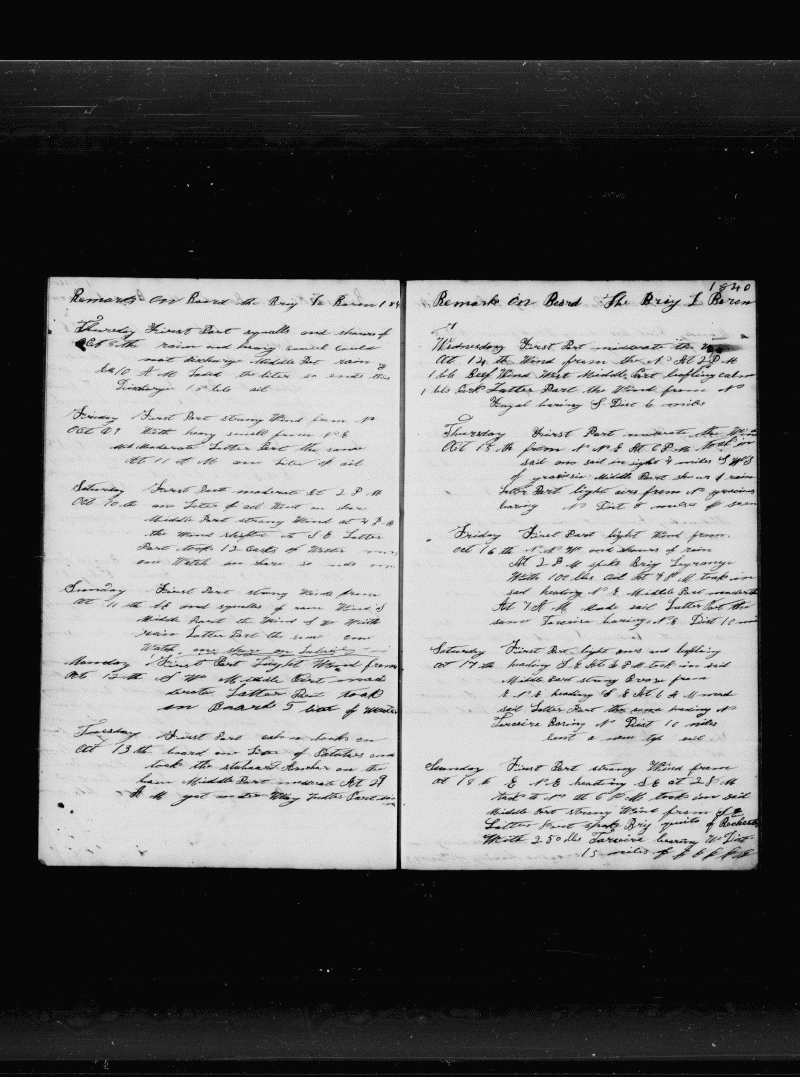 Remarks on Board the Brig Le Baron 184
Thursday First Part squalls and shower of
Oct 8 the rain and heavy swell could
not discharge Middle Part rain
10 A M Loded the liter so ends this
Discharge 15 bbls oil
Friday First Part strong Wind from N
Oct 9 With hevy swell from N E
Mid Moderate Latter Part the same
At 11 A M one liter of oil
Saturday First Part moderate At 2 P M
Oct 10 th one liter of oil Went on shor
Middle Part strong Wind at 4 P M
the Wind shifted to S E Latter
Part took 12 Casks of Water
one Watch on shore so ends
Sunday First Part strong Winds from
Oct 11 th S E and squalls of rain Wind S
Middle Part the Wind S W With
rain Latter Part the same one
Watch on shore on Liberty
Monday First Part Light Wind from
Oct 12 th S W Middle Part mod
derate Latter Part took
on Board 5 boat of water
Tuesday First Part calm took on
Oct 13 th board one Boat of Potatoes and
took the starboard Anchor on the
bow Middle Part moderate At 2
A M got under Way Latter Part
1840
Remark on Bord The Brig L Baron
Wednesday First Part moderate the
Oct 14 th Wind from the N At 2 P M
1 bbl Beef Wind West Middle Part bafling calm
1 bbl Pork Latter Part the Wind from N
Fayal baring S Dist 6 miles
Thursday First Part moderate the Wind
Oct 15 th from N N E At 6 P M took in
sail on sail in sight 4 miles S W S
of graciosa Middle Part shour of rain
Latter Part light airs from N graciosa
baring N Dist 8 miles
Friday First Part light Wind from
Oct 16 th N N W and shours of rain
At 2 P M spoke Brig Lagrange
With 100 bbls oil At 7 P M took in
sail heading N E Middle Part moderate
At 7 A M Made sail Latter Part the
same Terceire baring N E Dist 10
Saturday First Part light ares and bafling
Oct 17 th heading S E At 6 P M took in sail
Middle Part strong Breze from
E N E heading S E At 6 A M made
sail Latter Part the same heading N
Terceire Baring N Dist 10 miles
bent a new top sail
Sunday First Part strong Wind from
Oct 18 th E N E heading S E at 2 P M
tack to N th 6 P M took in sail
Middle Part strong Wind from S E
Latter Part spoke Brig of Rochester
With 250 bbls Terceire bearing W Dist
15 miles